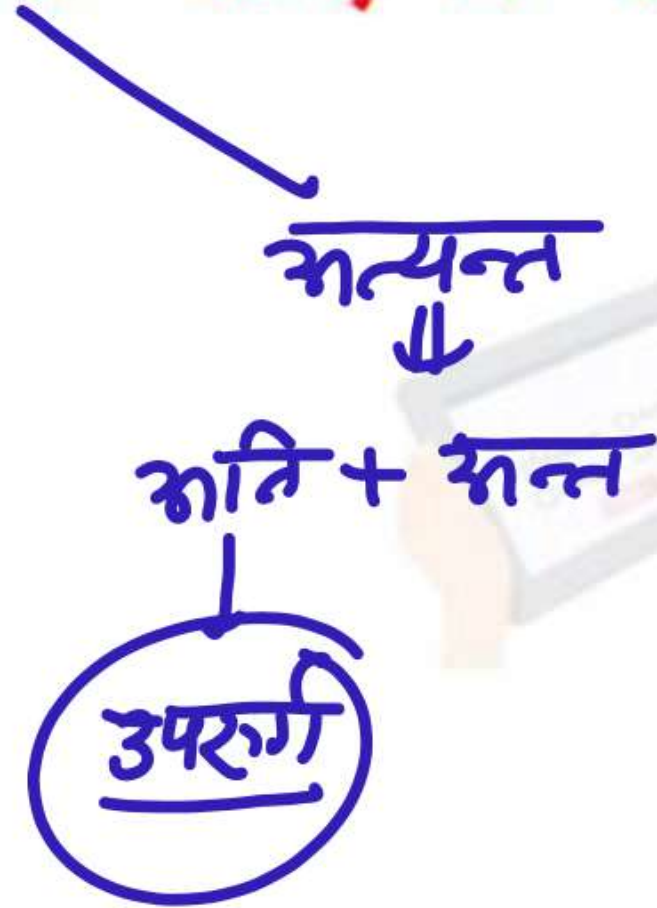 अत्यन्त
⇓
अति + अन्त
उपसर्ग